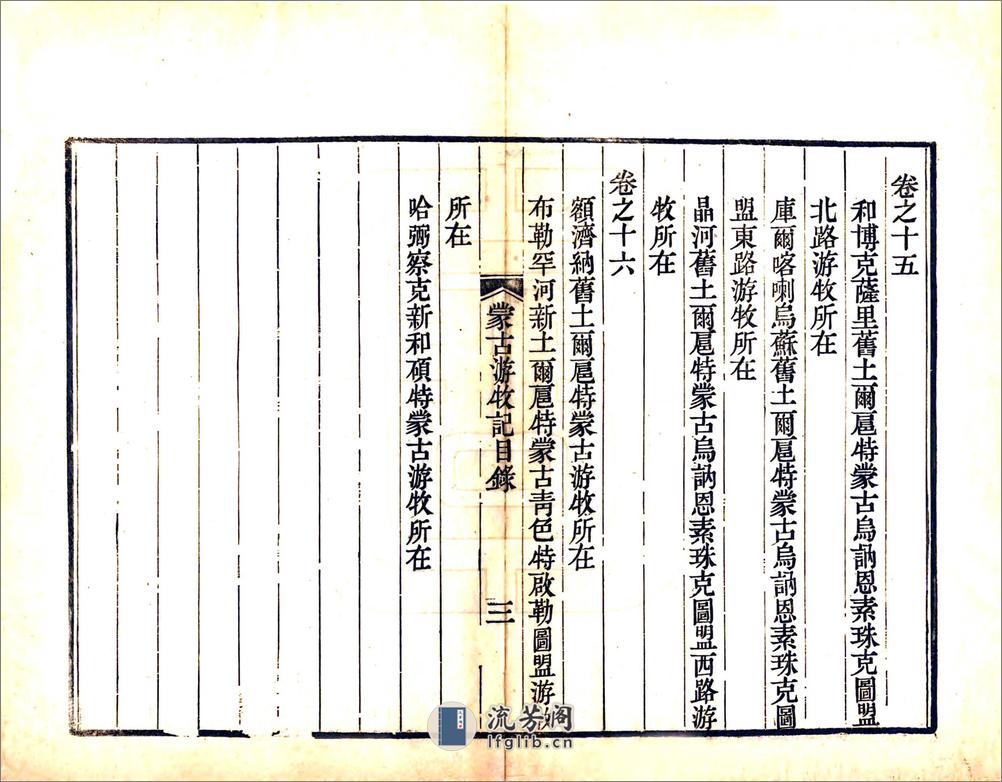 卷之十五
和博克薩里舊土爾扈特蒙古烏訥恩素珠克圖盟
北路游牧所在
庫爾喀喇烏蘇舊土爾扈特蒙古烏訥恩素珠克圖
盟東路游牧所在
晶河舊土爾扈特蒙古烏訥恩素珠克圖盟西路游
牧所在
卷之十六
額濟納舊土爾扈特蒙古游牧所在
布勒罕河新土爾扈特蒙古靑色特啟勒圖盟游牧
蒙古游牧記目錄 三
所在
哈弼察克新和碩特蒙古游牧所在
流芳阁
lfglib.cn